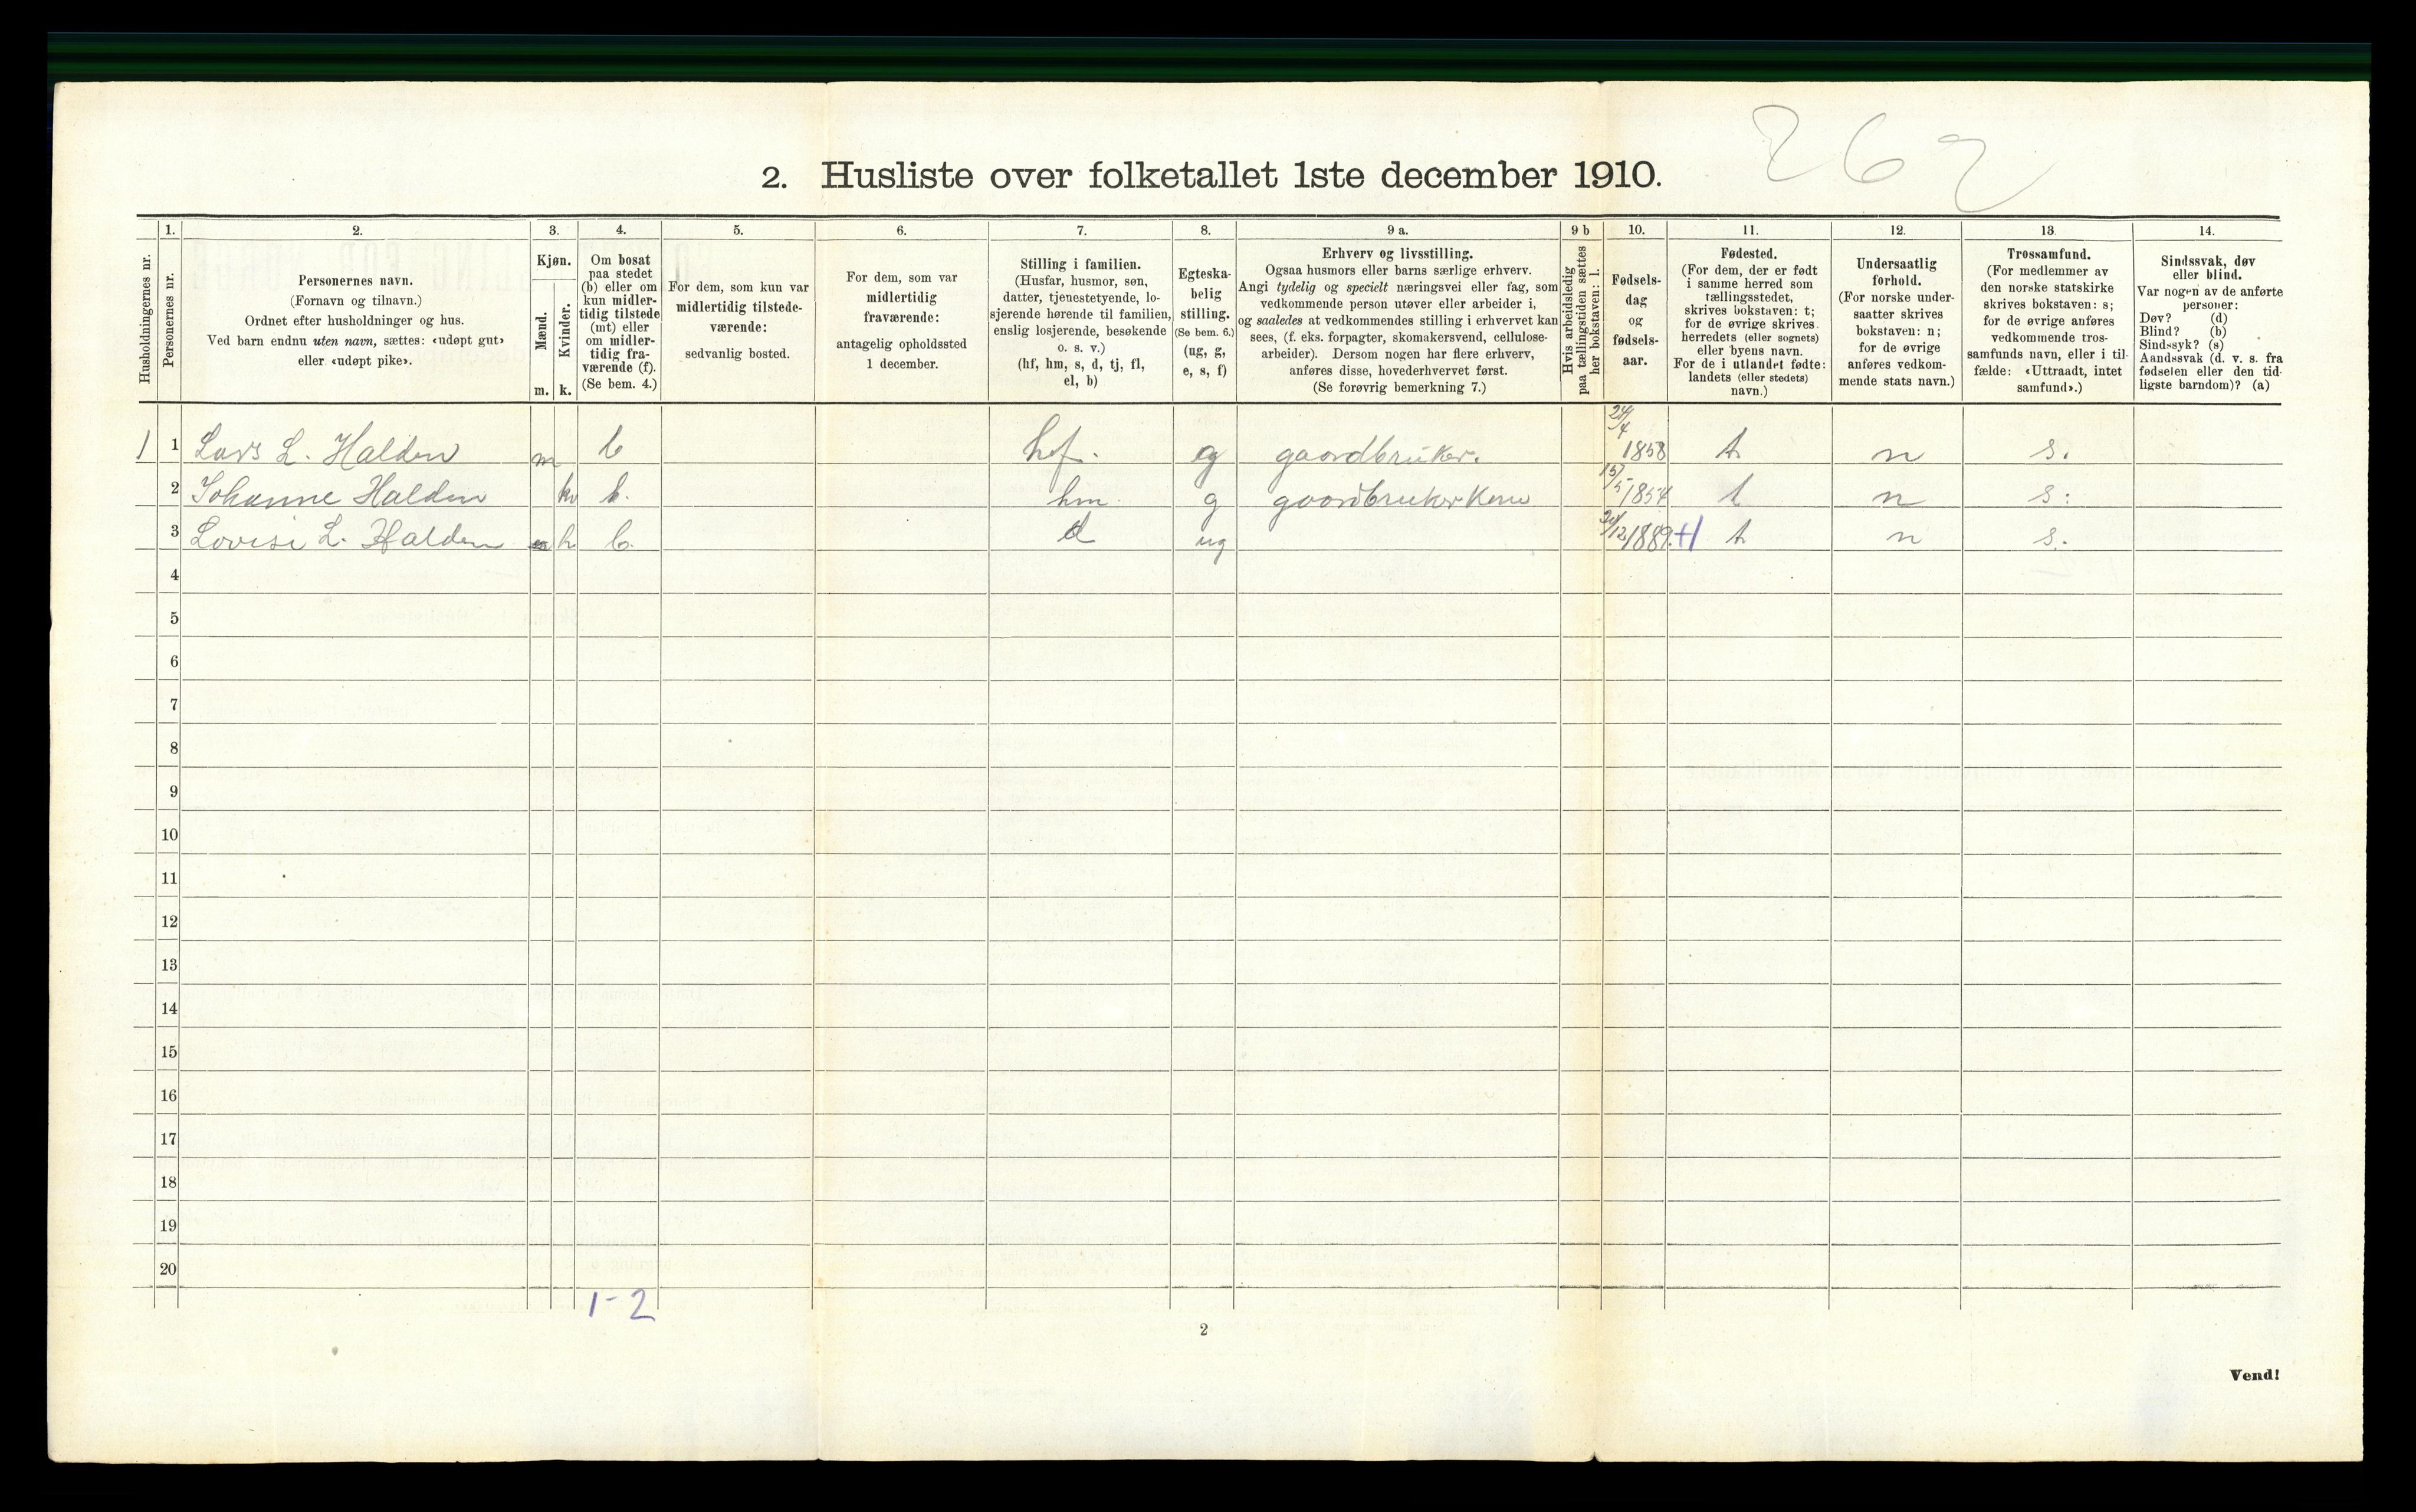 262
2. Husliste over folketallet 1ste december 1910.
Husholdningernes nr.
1.
Personernes nr.
2.
Personernes navn.
(Fornavn og tilnavn.)
Ordnet efter husholdninger og hus.
Ved barn endnu uten navn, sættes: «udøpt gut»
eller «udøpt pike».
3.
Kjøn.
Mænd.
m.
Kvinder.
k.
4.
Om bosat
paa stedet
(b) eller om
kun midler-
tidig tilstede
(mt) eller
om midler-
tidig fra-
værende (f).
(Se bem. 4.)
5.
For dem, som kun var
midlertidig tilstede-
værende:
sedvanlig bosted.
6.
For dem, som var
midlertidig
fraværende:
antagelig opholdssted
1 december.
7.
Stilling i familien.
(Husfar, husmor, søn,
datter, tjenestetyende, lo-
sjerende hørende til familien,
enslig losjerende, besøkende
o. s. v.)
(hf, hm, s, d, tj, fl,
el, b)
8.
Egteska-
belig
stilling.
(Se bem. 6.)
(ug, g,
e, s, f)
9 a.
Erhverv og livsstilling.
Ogsaa husmors eller barns særlige erhverv.
Angi tydelig og specielt næringsvei eller fag, som
vedkommende person utøver eller arbeider i,
og saaledes at vedkommendes stilling i erhvervet kan
sees, (f. eks. forpagter, skomakersvend, cellulose-
arbeider). Dersom nogen har flere erhverv,
anføres disse, hovederhvervet først.
(Se forøvrig bemerkning 7.)
9 b
Hvis arbeidsledig
paa tællingstiden sættes
her bokstaven: l.
10.
Fødsels-
dag
og
fødsels-
aar.
11.
Fødested.
(For dem, der er født
i samme herred som
tællingsstedet,
skrives bokstaven: t;
for de øvrige skrives
herredets (eller sognets)
eller byens navn.
For de i utlandet fødte:
landets (eller stedets)
navn.)
12.
Undersaatlig
forhold.
(For norske under-
saatter skrives
bokstaven: n;
for de øvrige
anføres vedkom-
mende stats navn.)
13
Trossamfund.
(For medlemmer av
den norske statskirke
skrives bokstaven: s;
for de øvrige anføres
vedkommende tros-
samfunds navn, eller i til-
fælde: «Uttraadt, intet
samfund».)
14.
Sindssvak, døv
eller blind.
Var nogen av de anførte
personer:
Døv? (d)
Blind? (b)
Sindssyk? (s)
Aandssvak (d. v. s. fra
fødselen eller den tid-
ligste barndom)? (a)
1 1 Lars L. Halden m b hf. g gaardbruker. 24/4 1858 t n s.
2 Johanne Halden kv b. hm. g gaardbrukerkone 15/5 1854 t n s:
3 Lovise L. Halden k b. d ug 1889 t n s.
4
5
6
7
8
9
10
11
12
13
14
15
16
17
18
19
20
1-2
2
Vend!